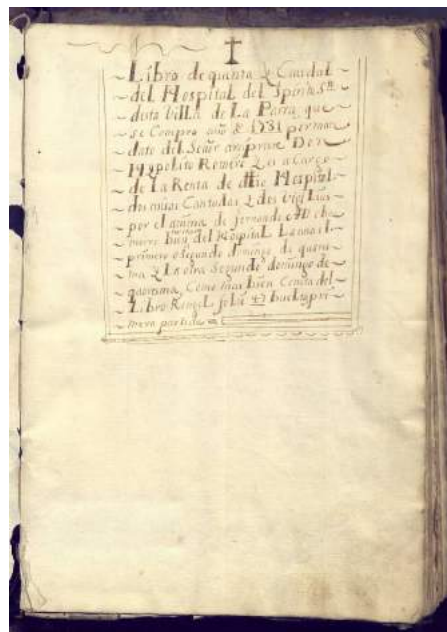 Libro de quenta y Caudal
del Hospital del Spiritu Stt
desta billa de La Parra que
se Compro año de 1731 por man
dato del Señor Don
Hypolito Romero y es a Cargo
de La Renta de dho Hospital
dos misas Cantadas y dos vigilias
por el anima de fernando
bien del Hospital La una el
primero o segundo domingo de quares
ma y La otra segundo domingo de
quaresma, Como mas bien Consta del
Libro folio 47 buelta pri
mera partida